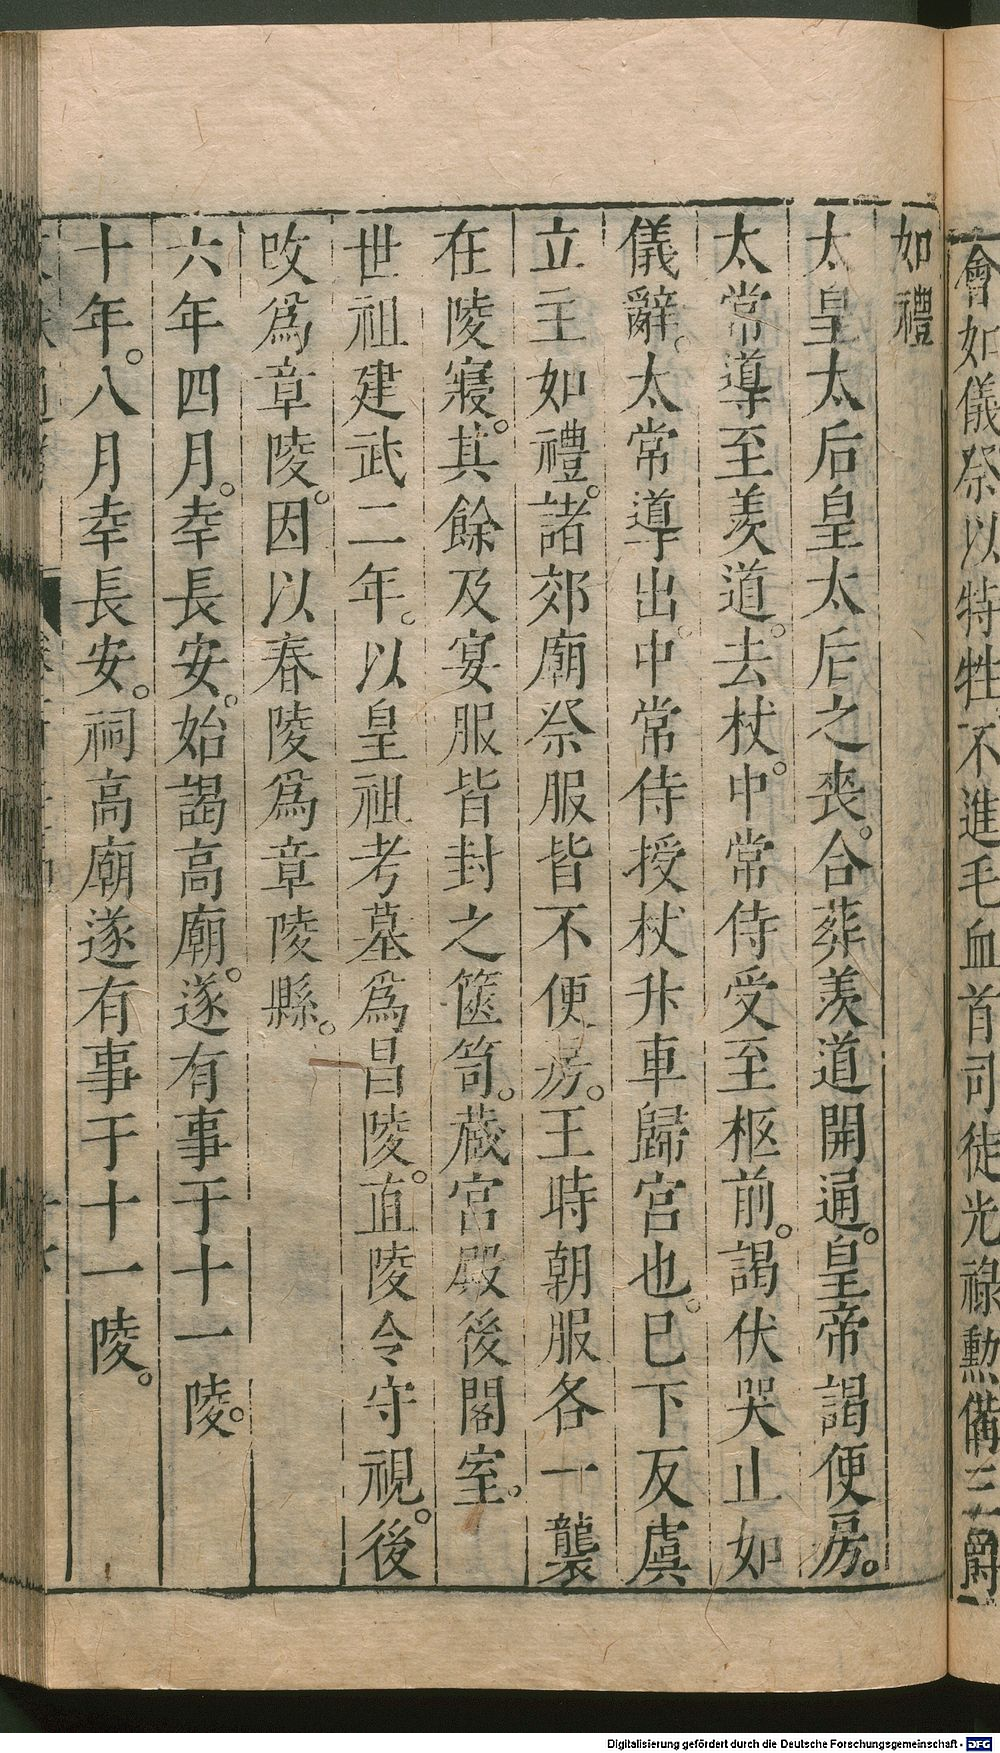 會如儀祭以特牲不進毛血首司徒光祿勲備三爵
如禮
太皇太后皇太后之喪。合葬羨道開通。皇帝謁便房。
太常導至羨道。去杖。中常侍受至柩前。謁伏哭止如
儀辭。太常導出。中常侍授杖升車歸宮也。巳下反虞
立主如禮。諸郊廟祭服皆不便房。王時朝服各一襲
在陵寢。其餘及宴服皆封之篋笥。蔵宮殿後閣室。
世祖建武二年。以皇祖考墓爲昌陵。直陵令守視。後
改爲章陵。因以舂陵爲章陵縣。
六年四月。幸長安。始謁高廟。遂有事于十一陵。
十年。八月幸長安。祠高廟遂有事于十一陵。
Digitalisierung gefördert durch die Deutsche Forschungsgemeinschaft - DFG